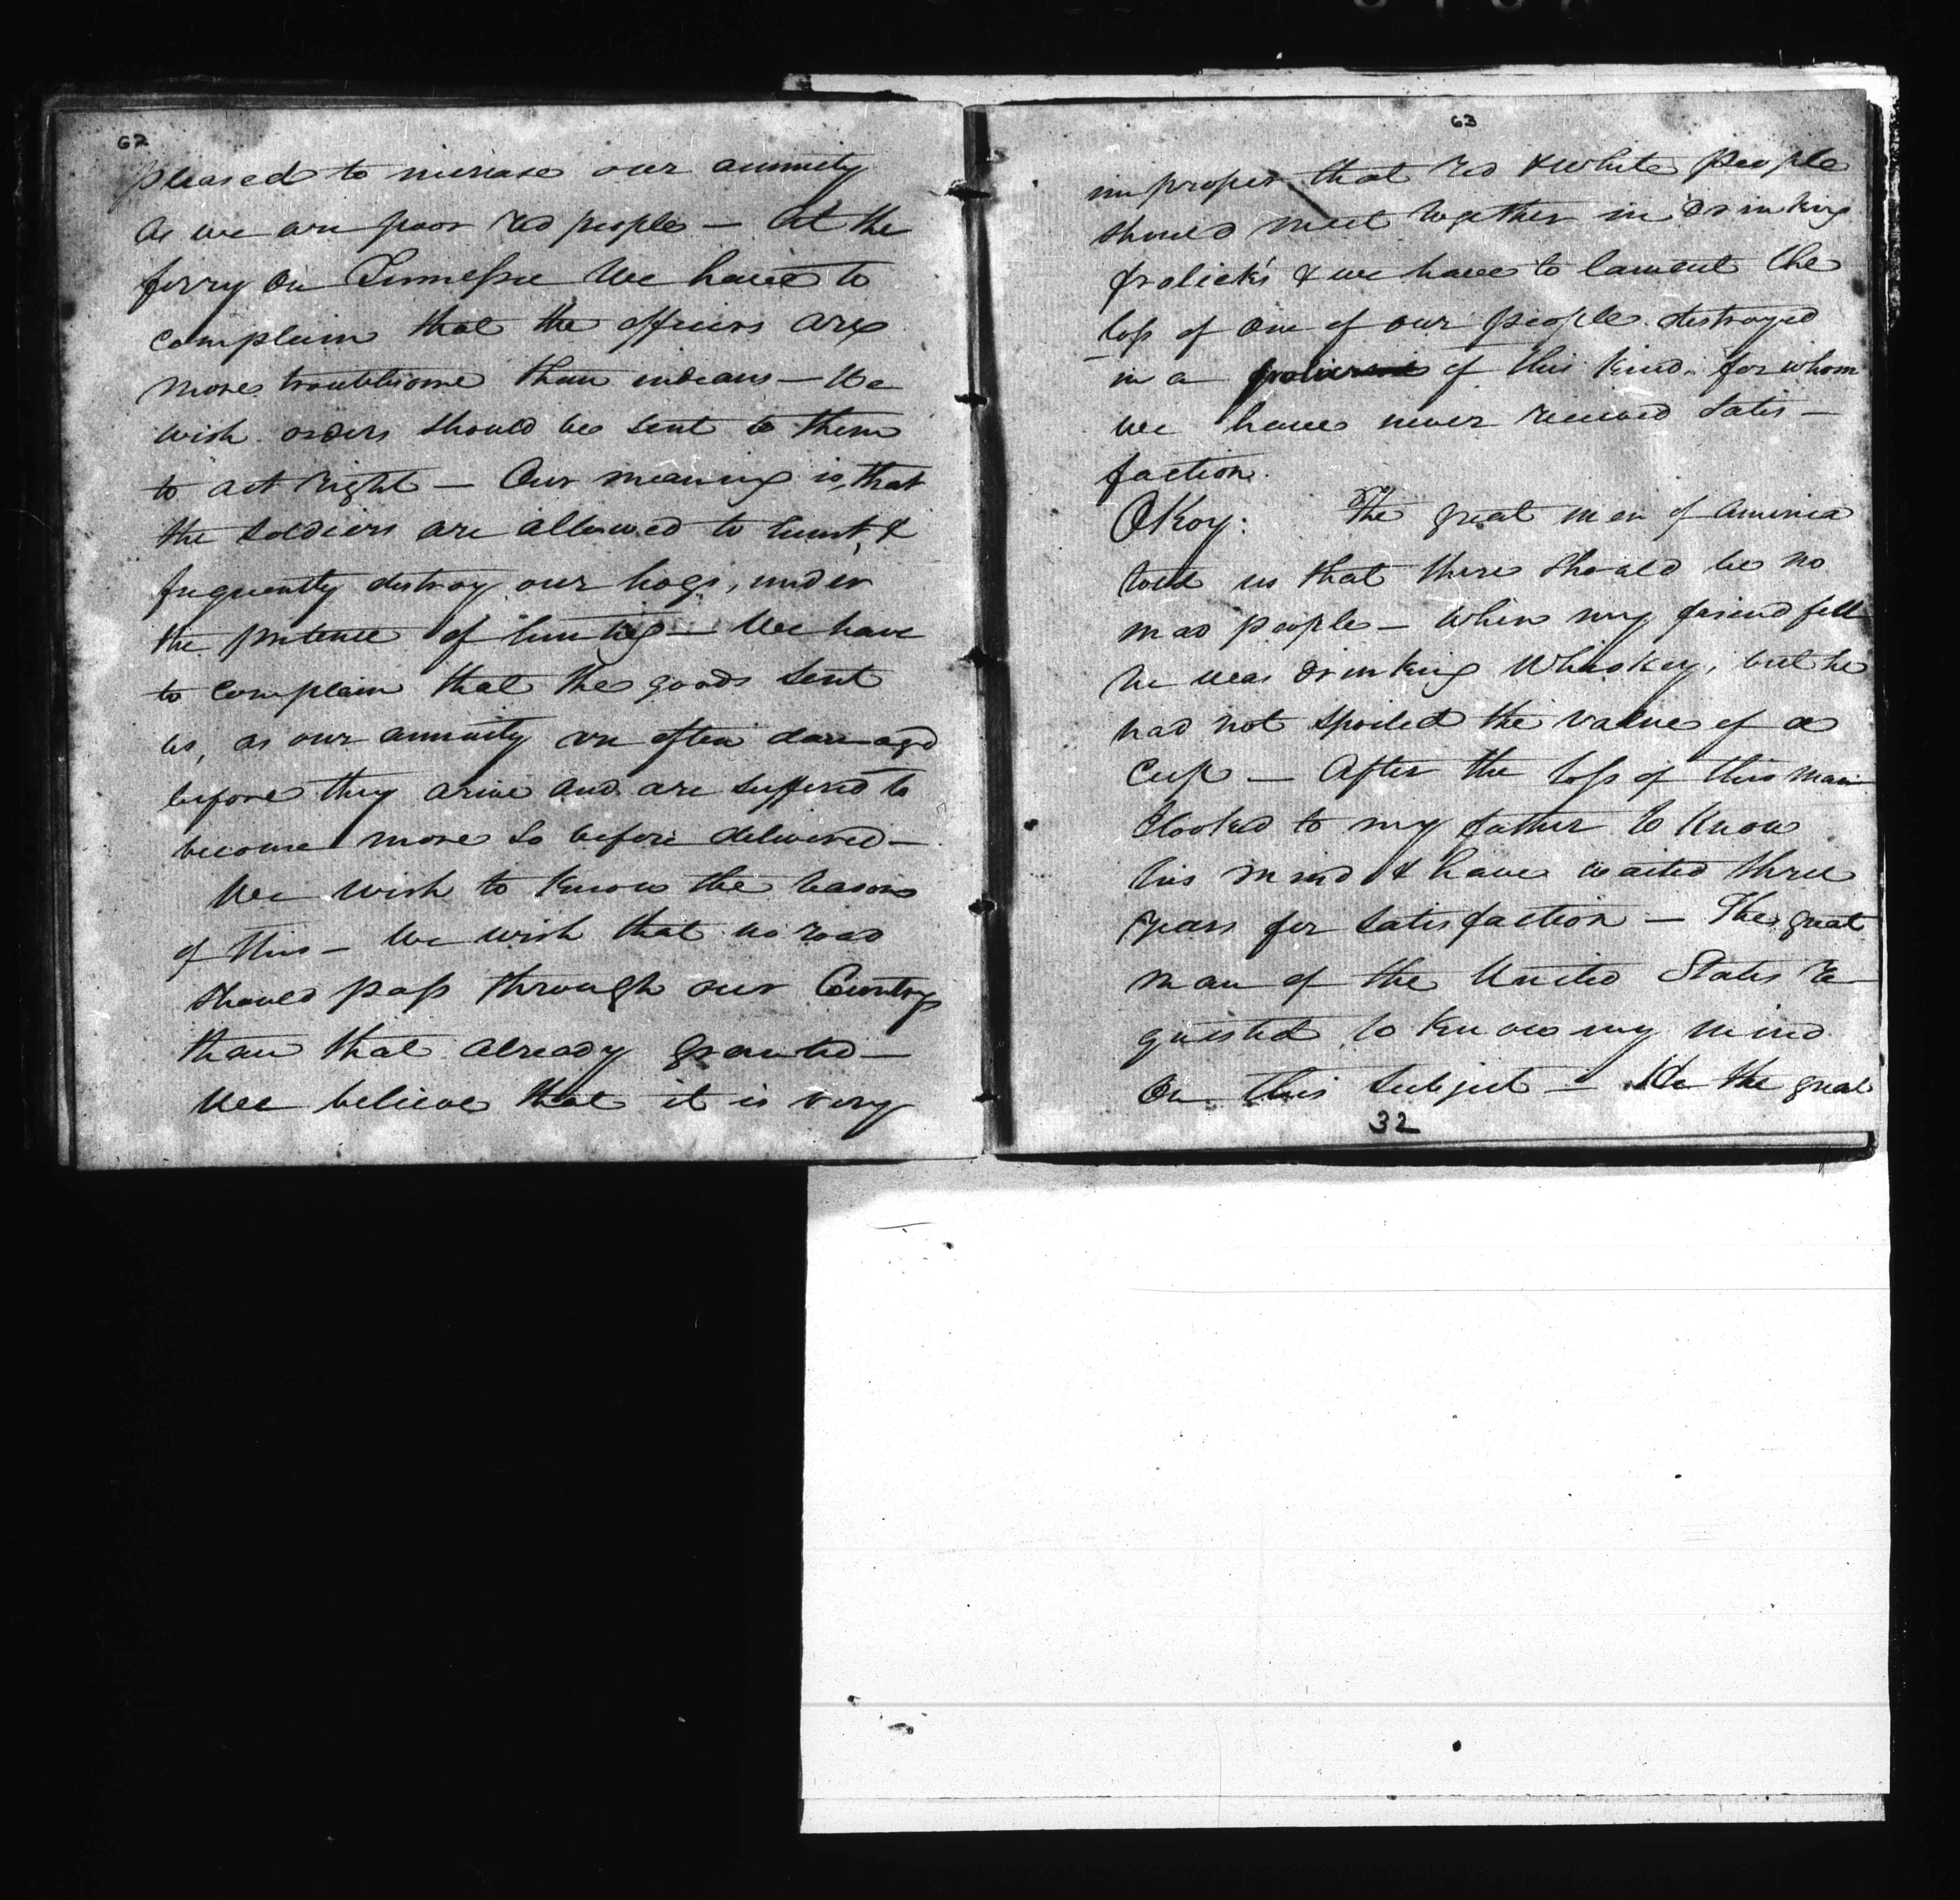 62
pleased to increase our annuity
as we are poor red people — At the
ferry on Tennessee We have to
complain that the officers are
more troublesome than indians — We
wish orders should be sent to them
to act right — Our meaning is, that
the soldiers are allowed to hunt, &
frequently destroy our hogs, under
the pretence of hunting — We have
to complain that the goods sent
us, as our annuity are often damaged
before they arive and are suffered to
become more so before delivered —
We wish to know the reasons
of this — We wish that no road
should pass through our Country
than that already granted —
We believe that it is very
63
improper that red & white people
should meet together in drinking
frolick's & we have to lament the
loss of one of our people destroyed
in a of this kind. for whom
we have never received satis-
faction.
OKoy: The great men of America
told us that there should be no
mad people — When my friend fell
he was drinking Whiskey, but he
had not spoiled the value of a
Cup — After the loss of this man
I looked to my father to know
his mind & have waited three
years for satisfaction — The great
man of the United States re-
quested to know my mind
on this subject — the great
32